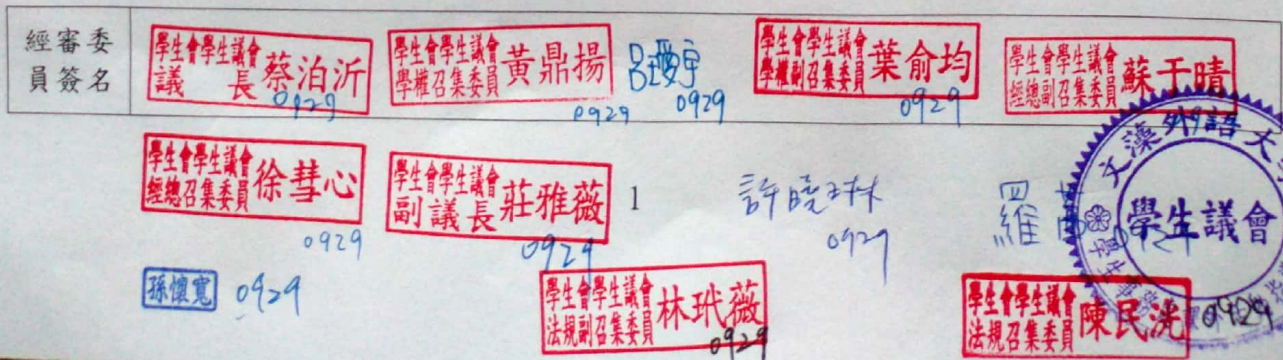 經審委
員簽名
學生會學生議會
議長 蔡泊沂
0929
學生會學生議會
學權召集委員 黃鼎揚
0929
0929
學生會學生議會
學權副召集委員 葉俞均
0929
學生會學生議會
經總副召集委員 蘇于晴
學生會學生議會
經總召集委員 徐彗心
0929
學生會學生議會
副議長 莊雅薇
0929
1
許曉琳
0929
羅
文藻外語大
學生議會
孫懷寬 0929
學生會學生議會
法規副召集委員 林玳薇
0929
學生會學生議會
法規召集委員 陳民洸
0929